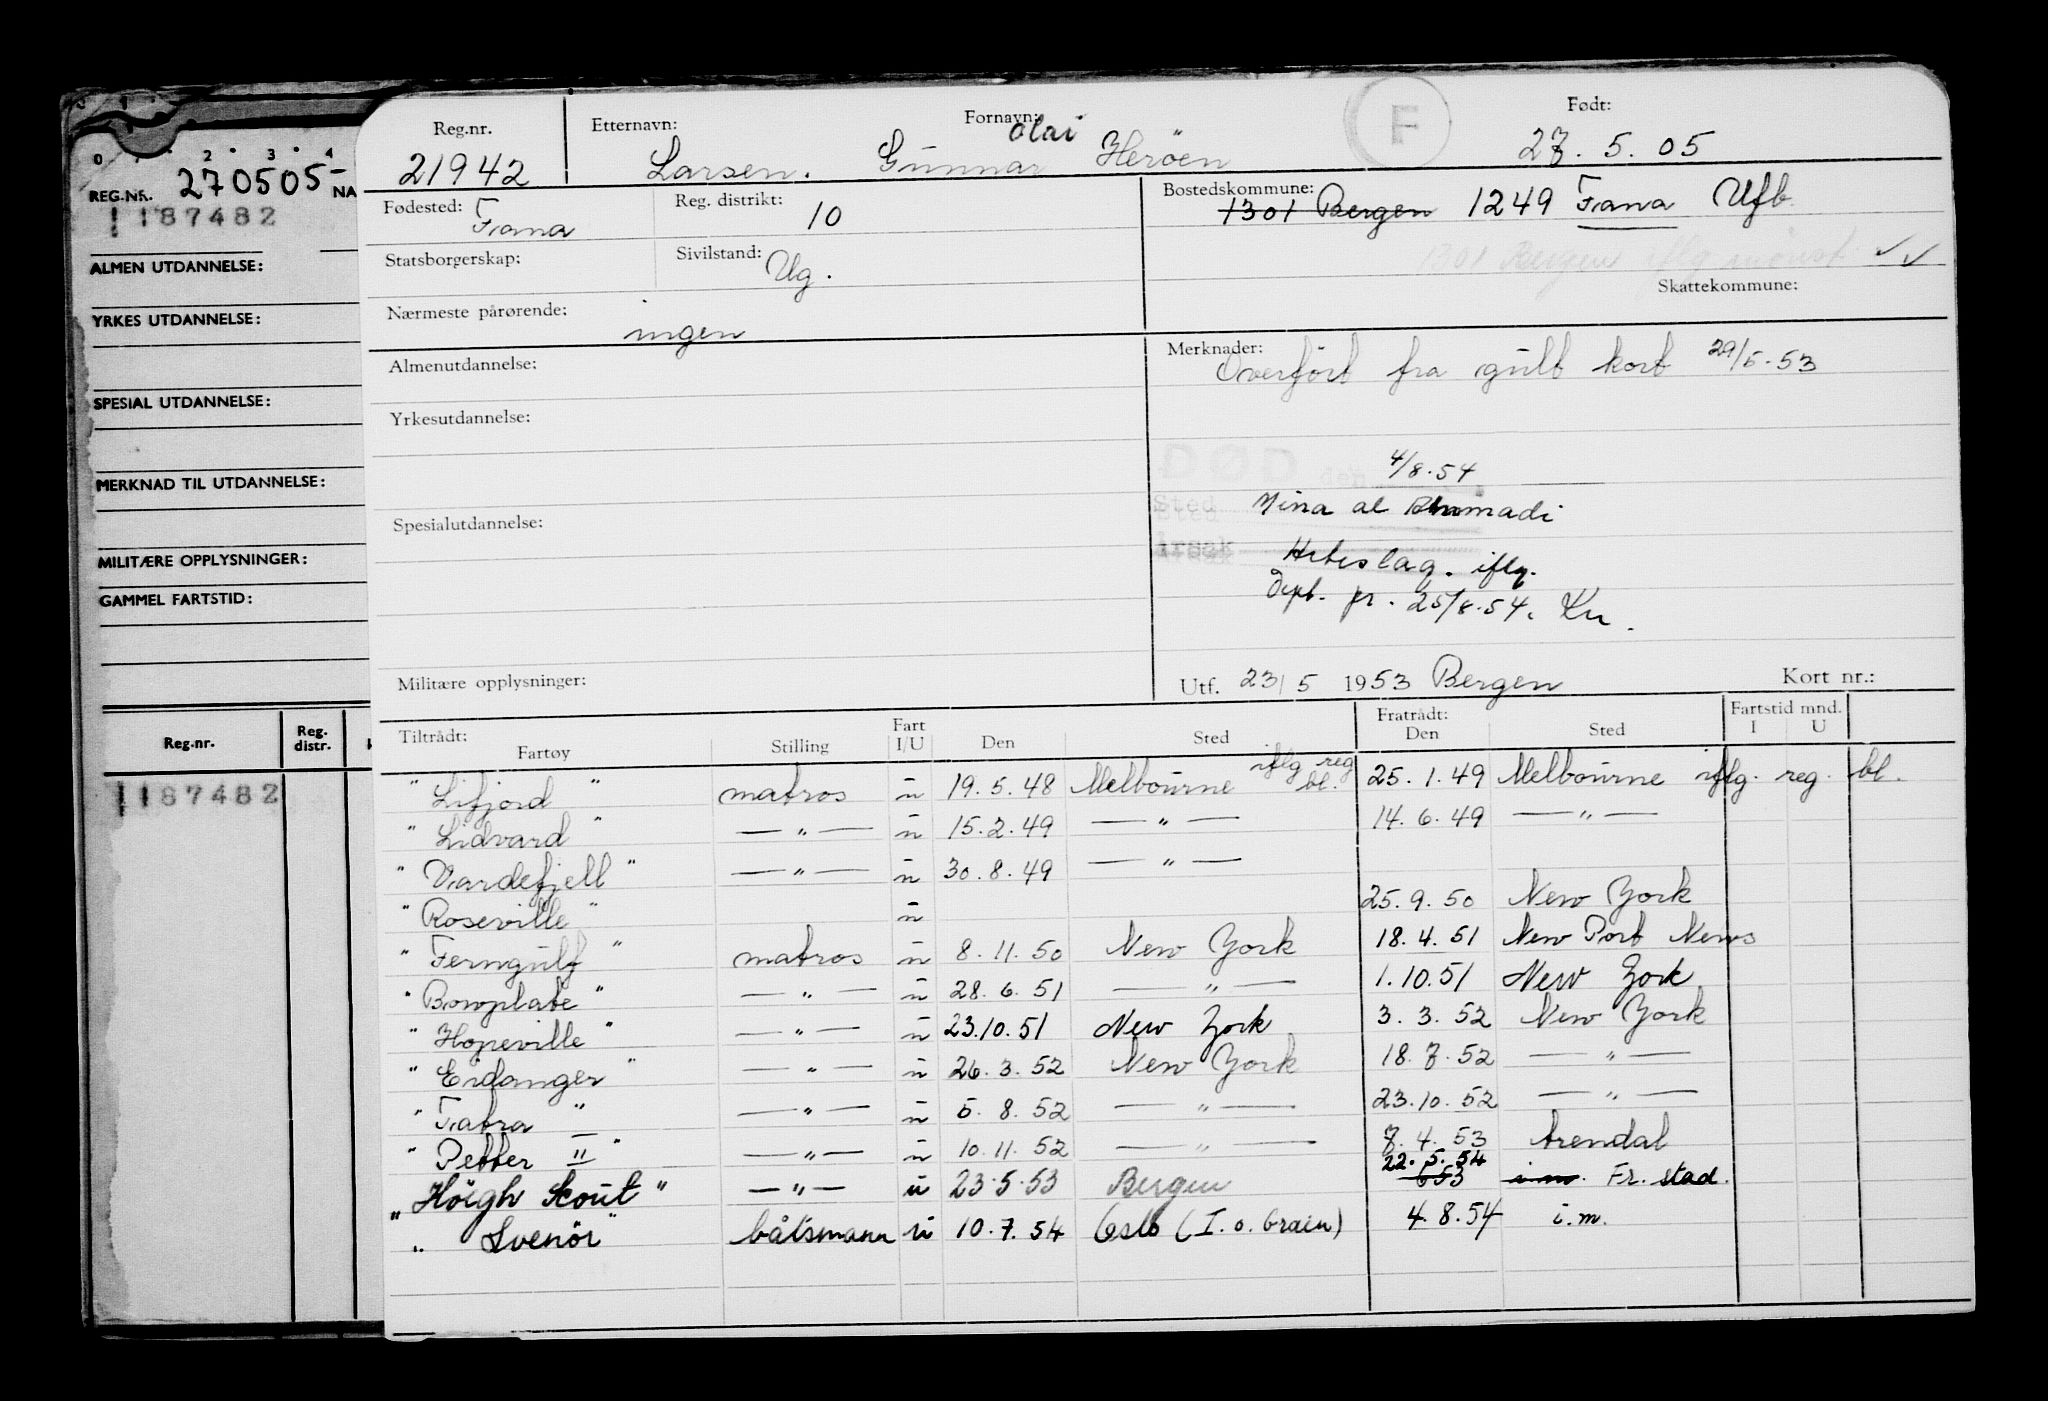 0 1 2 3 4
REG.NR. 270505- NA
1187482
ALMEN UTDANNELSE:
YRKES UTDANNELSE:
SPESIAL UTDANNELSE:
MERKNAD TIL UTDANNELSE:
MILITÆRE OPPLYSNINGER:
GAMMEL FARTSTID:
Reg.nr. Reg. distr.
1187482
Reg.nr. Etternavn: Fornavn: F Født:
Olai
21942 Larsen. Gunnar Heröen 27. 5. 05
Fødested: Fana Reg. distrikt: 10 Bostedskommune: 1301 Bergen 1249 Fana Ufb.
1301 Bergen iflg mönst
Statsborgerskap: Sivilstand: Ug. Skattekommune:
Nærmeste pårørende: ingen
Almenutdannelse: Merknader: Overfört fra gult kort 29/5-53
Yrkesutdannelse:
DØD den 4/8.54
Sted Mina al
Spesialutdannelse: Årsak Heteslag. iflg.
Dept. pr. 25/8.54. Kn.
Militære opplysninger: Utf. 23/5 1953 Bergen Kort nr.:
Tiltrådt: Fratrådt: Fartstid mnd.
Fartøy Stilling Fart I/U Den Sted Den Sted I U
"Lifjord" matros u 19.5.48 Melbourne iflg reg bl. 25.1.49 Melbourne iflg. reg. bl.
"Lidvard" —"— u 15.2.49 —"— 14.6.49 —"—
"Vardefjell" —"— u 30.8.49 —"—
"Roseville" u 25.9.50 New York
"Ferngulf" matros u 8.11.50 New York 18.4.51 New Port News
"Bowplate" —"— u 28.6.51 —"— 1.10.51 New York
"Hopeville" —"— u 23.10.51 New York 3.3.52 New York
"Eidanger" —"— u 26.3.52 New York 18.7.52 —"—
"Fatra" —"— u 5.8.52 —"— 23.10.52 —"—
"Petter II" —"— u 10.11.52 —"— 7.4.53 Arendal
"Höigh Scout" —"— u 23.5.53 Bergen 22.5.54 653 i.m. Fr.stad.
"Svenör" båtsmann u 10.7.54 Oslo (I.o. Grain) 4.8.54 i.m.